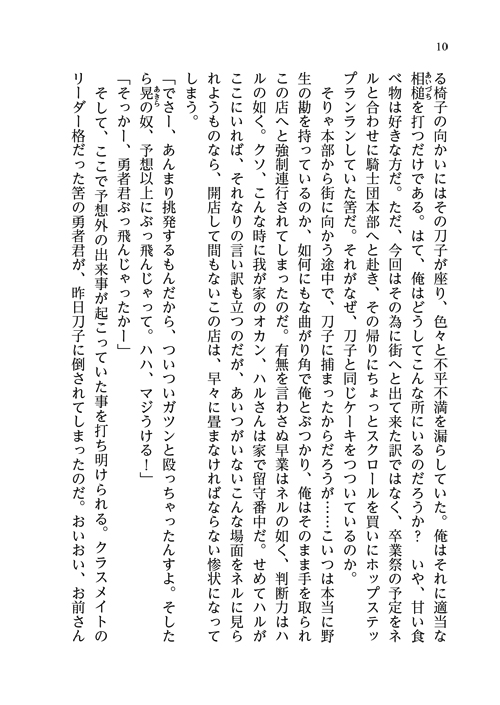 10
る椅子の向かいにはその刀子が座り、色々と不平不満を漏らしていた。俺はそれに適当な
相槌を打つだけである。はて、俺はどうしてこんな所にいるのだろうか？　いや、甘い食
べ物は好きな方だ。ただ、今回はその為に街へと出て来た訳ではなく、卒業祭の予定をネ
ルと合わせに騎士団本部へと赴き、その帰りにちょっとスクロールを買いにホップステッ
プランランしていた筈だ。それがなぜ、刀子と同じケーキをつついているのか。
　そりゃ本部から街に向かう途中で、刀子に捕まったからだろうが……こいつは本当に野
生の勘を持っているのか、如何にもな曲がり角で俺とぶつかり、俺はそのまま手を取られ
この店へと強制連行されてしまったのだ。有無を言わさぬ早業はネルの如く、判断力はハ
ルの如く。クソ、こんな時に我が家のオカン、ハルさんは家で留守番中だ。せめてハルが
ここにいれば、それなりの言い訳も立つのだが、あいつがいないこんな場面をネルに見ら
れようものなら、開店して間もないこの店は、早々に畳まなければならない惨状になって
しまう。
「でさー、あんまり挑発するもんだから、ついついガツンと殴っちゃったんすよ。そした
ら晃の奴、予想以上にぶっ飛んじゃって。ハハ、マジうける！」
「そっかー、勇者君ぶっ飛んじゃったかー」
　そして、ここで予想外の出来事が起こっていた事を打ち明けられる。クラスメイトの
リーダー格だった筈の勇者君が、昨日刀子に倒されてしまったのだ。おいおい、お前さん